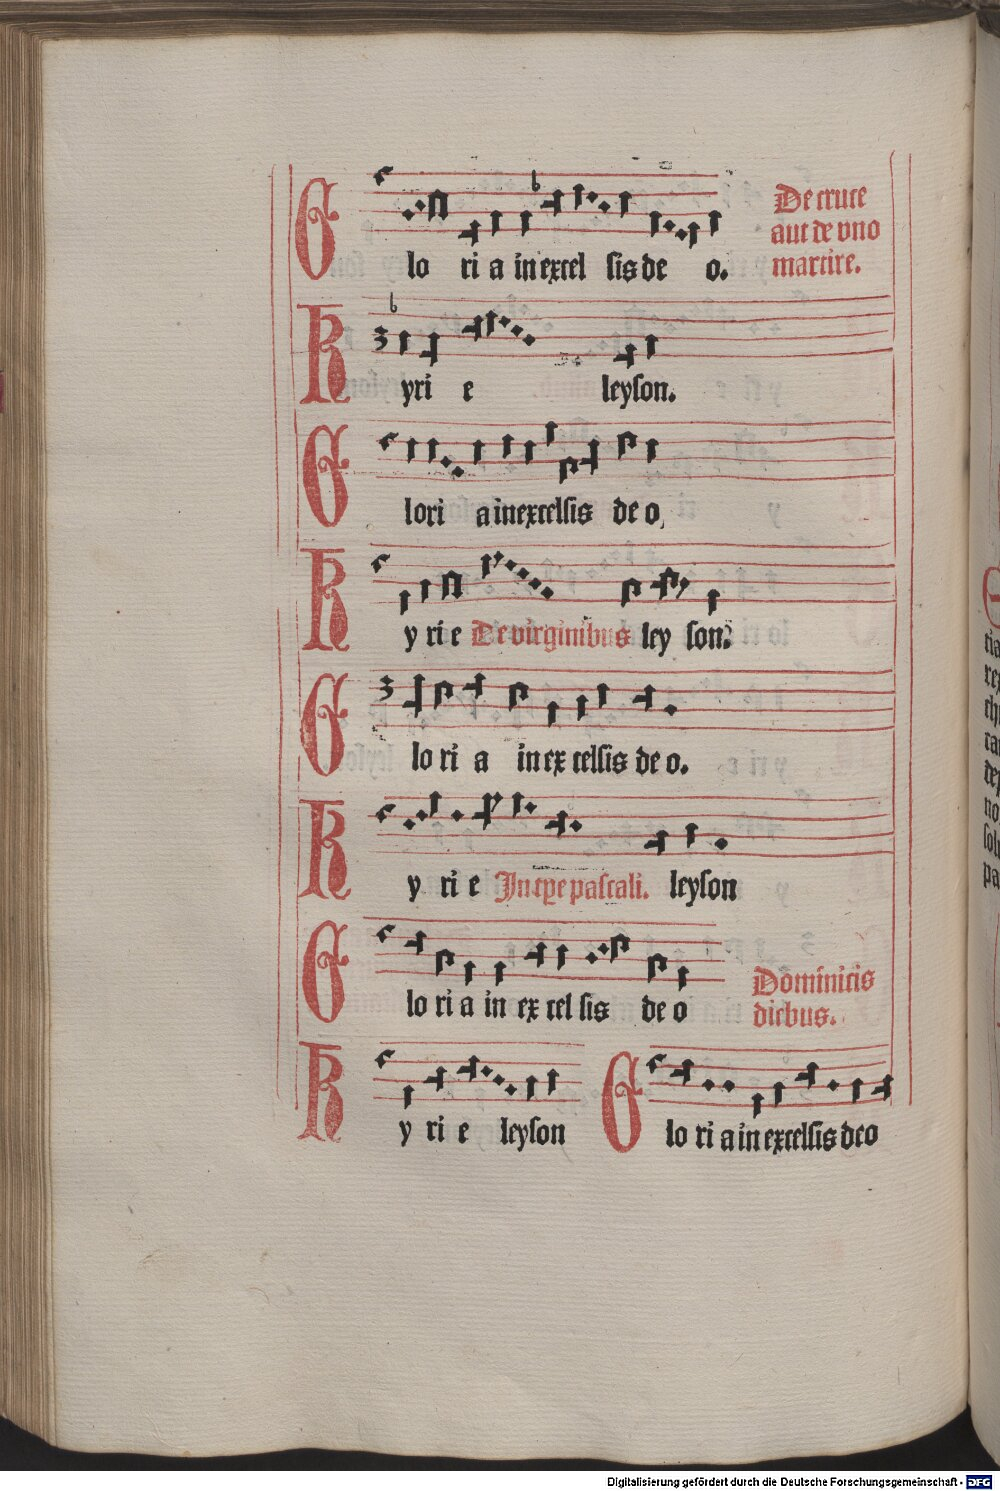 Gloria in excelsis deo. De cruce
aut de vno
martire.
Kyrie leyson.
Gloria in excelsis deo.
Kyrie De virginibus leyson.
Gloria in excelsis deo.
Kyrie In tpe pascali. leyson
Gloria in excelsis deo Dominicis
diebus.
Kyrie leyson Gloria in excelsis deo
Digitalisierung gefördert durch die Deutsche Forschungsgemeinschaft - DFG